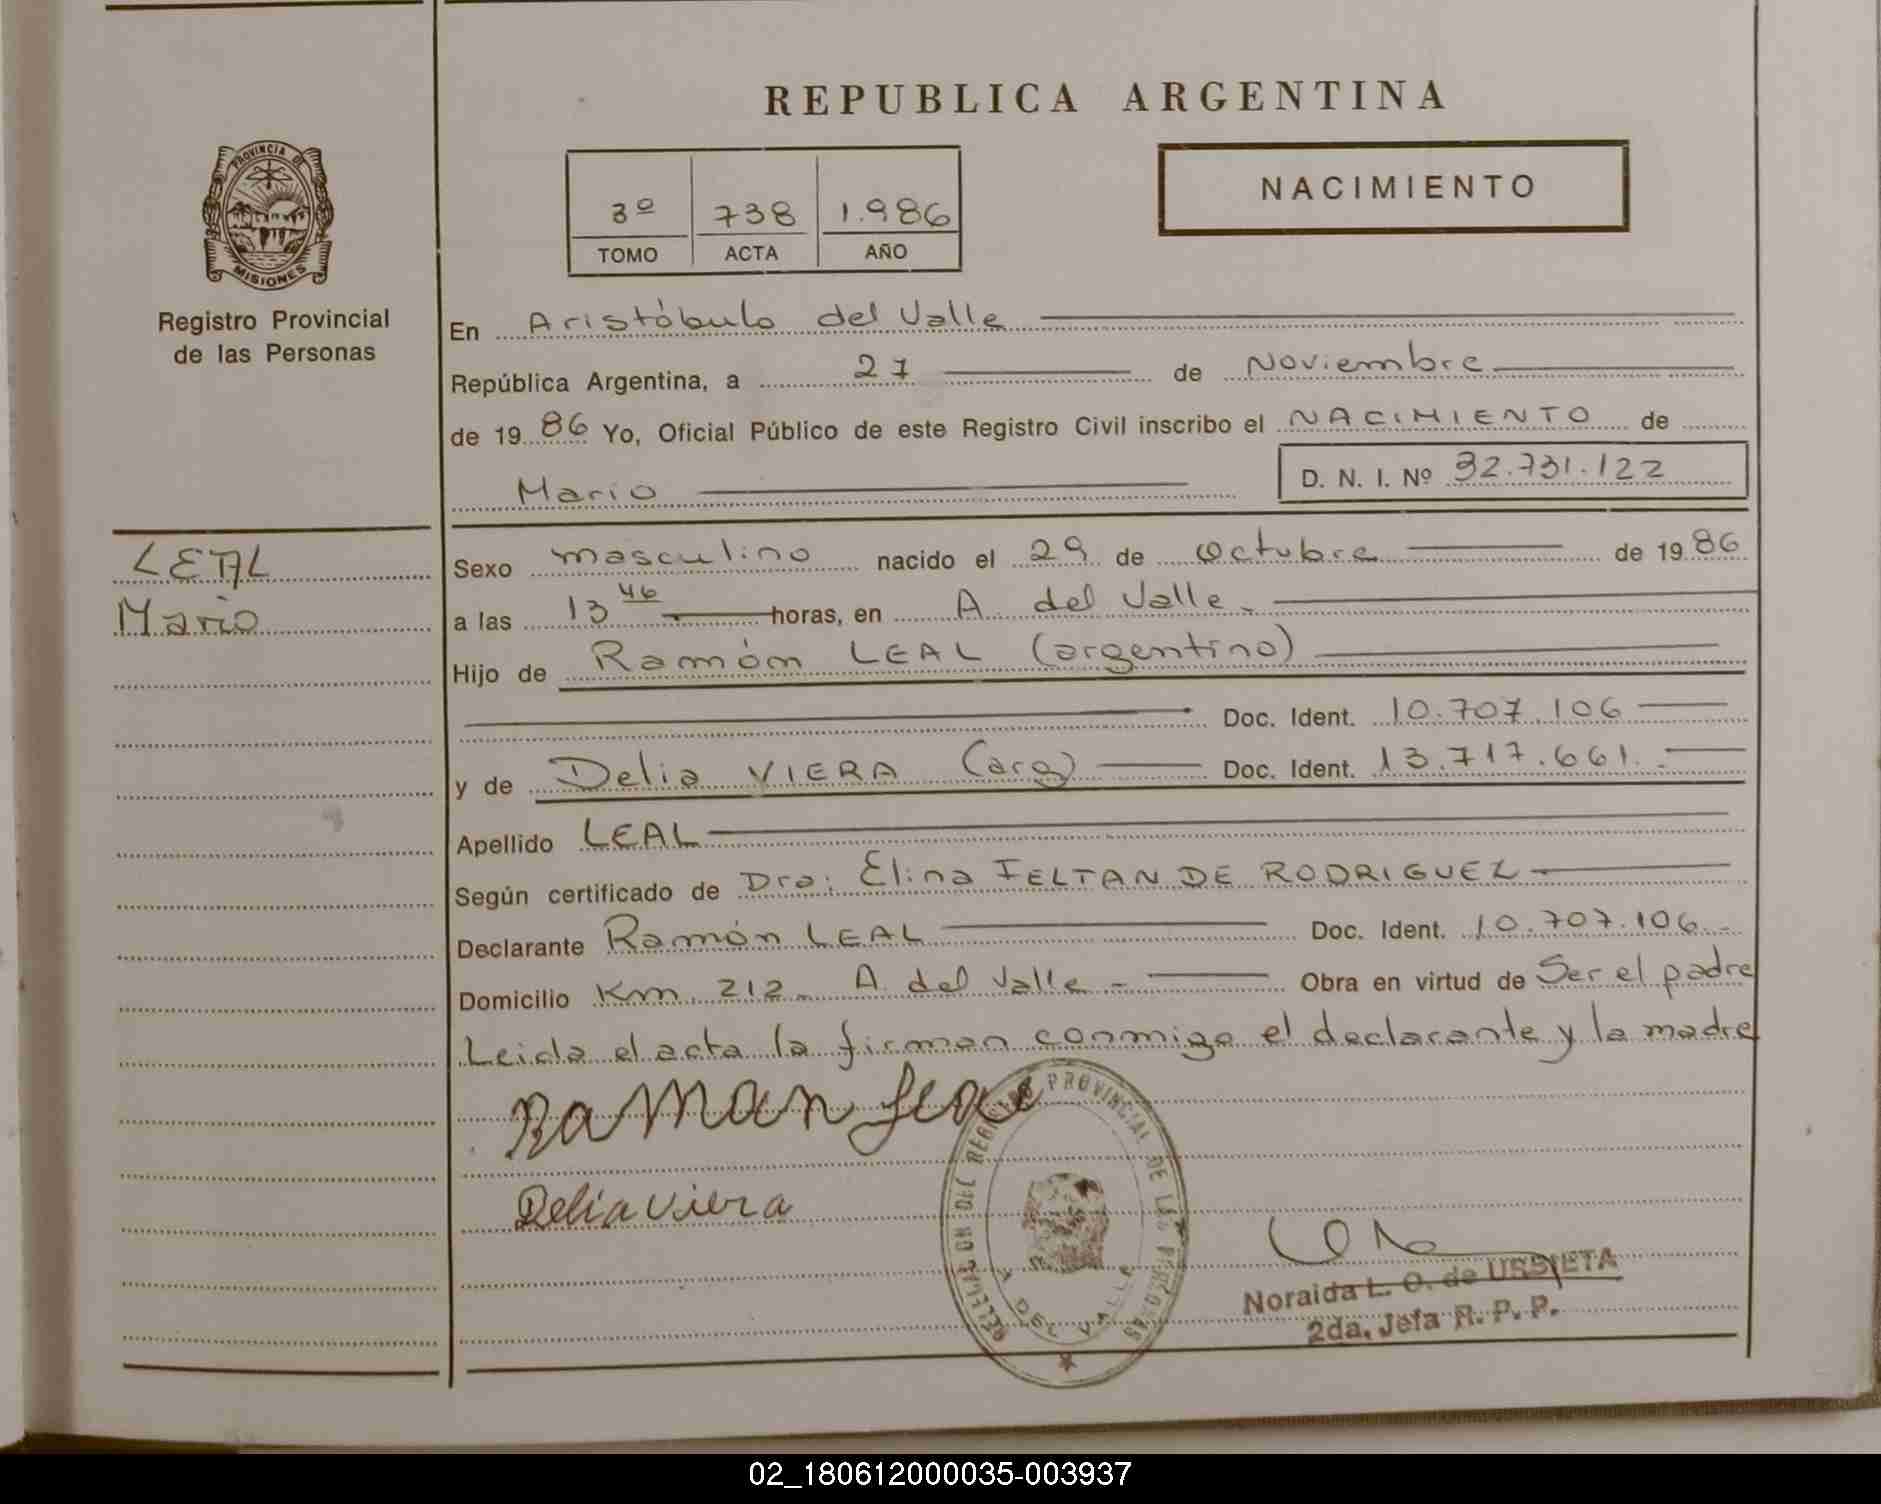 REPUBLICA ARGENTINA
PROVINCIA DE
MISIONES
Registro Provincial
de las Personas
3º 738 1.986
TOMO ACTA AÑO
NACIMIENTO
En Aristóbulo del Valle
República Argentina, a 27 de Noviembre
de 1986 Yo, Oficial Público de este Registro Civil inscribo el NACIMIENTO de
Mario D. N. I. Nº 32.731.122
LEAL
Mario
Sexo masculino nacido el 29 de octubre de 1986
a las 13 46 horas, en A. del Valle.
Hijo de Ramón LEAL (argentino)
Doc. Ident. 10.707.106
y de Delia VIERA (arg) Doc. Ident. 13.717.661.-
Apellido LEAL
Según certificado de Dra: Elina FELTAN DE RODRIGUEZ
Declarante Ramón LEAL Doc. Ident. 10.707.106.-
Domicilio Km. 212. A. del Valle.- Obra en virtud de Ser el padre
Leida el acta la firman conmigo el declarante y la madre
Raman Leal
Delia viera
DELEGACION DEL REGISTRO PROVINCIAL DE LAS PERSONAS
A. DEL VALLE
Noraida L. O. de URSIETA
2da. Jefa R. P. P.
02_180612000035-003937